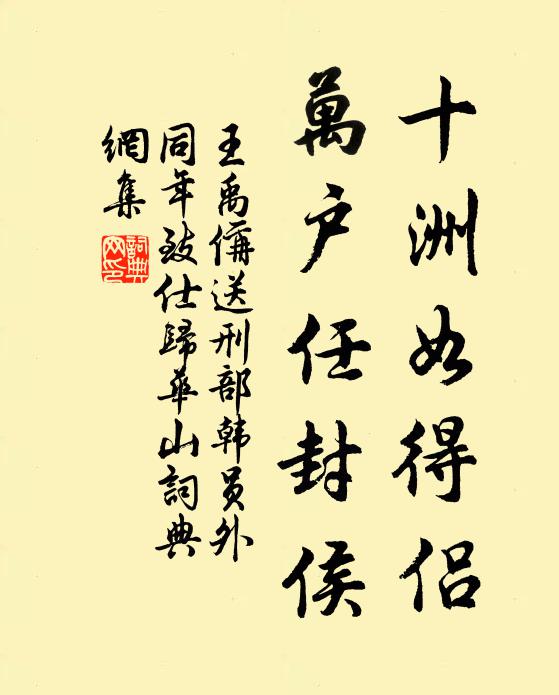 十洲如得侣
萬户任封侯
王禹偁送刑部韩员外
同年致仕歸華山詞典
網集
詞典
网印